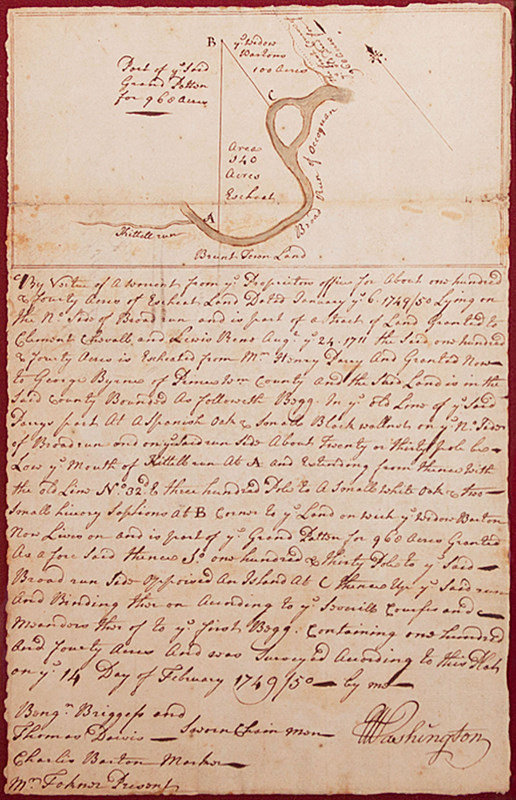 B
ye Widow
Bartons
100 Acres
Part of ye Said
Grand Patton
for 960 Acres
C
Area
140
Acres
Escheat
Broad Run of Occoquan
A
Kittell run
Brunt Town Land
By Virtue of A Worrent from ye Proprietors office for About one hundred
& fourty Acres of Escheat Land Dated January ye 6 1749/50 Lying on
the No. Side of Broad run and is part of a Tract of Land Granted to
Clement Chevalle and Lewis Reno Augt ye 24. 1711 the Said one hundred
& fourty Acres is Escheted from Mr Henry Darcy And Granted Now
to George Byrne of Prince Wm County and the Said Land is in the
Said County Bounded As followeth Begg. In ye old Line of ye Said
Darcys part At A Spanish Oak & Small Black wallnut on ye No. Side
of Broad run and on ye Said run Side About Twenty or thirty pole be
Low ye Mouth of Kittell run At A and Extending from thence With
the old Line No. 32d E three hundred Pole to A Small white Oak & two
Small hicory Saplins At B Corner to ye Land on wich ye Widow Barton
Now Lives on and is part of ye Grand Patton for 960 Acres Granted
As a fore Said thence So one hundred & Thirty Pole to ye Said
Broad run Side Opposied An Island At C thence Up ye Said run
And Binding ther on Acording to ye Severill Courses and
Meanders ther of to ye first Begg. Containing one hundred
And fourty Acres And was Surveyed According to this Plat
on ye 14 Day of February 1749/50 by me
GWashington
Bengn Briggess and
Thomas Davis Sworn Chain men
Charlis Barton Marker
Mr Fokner Present